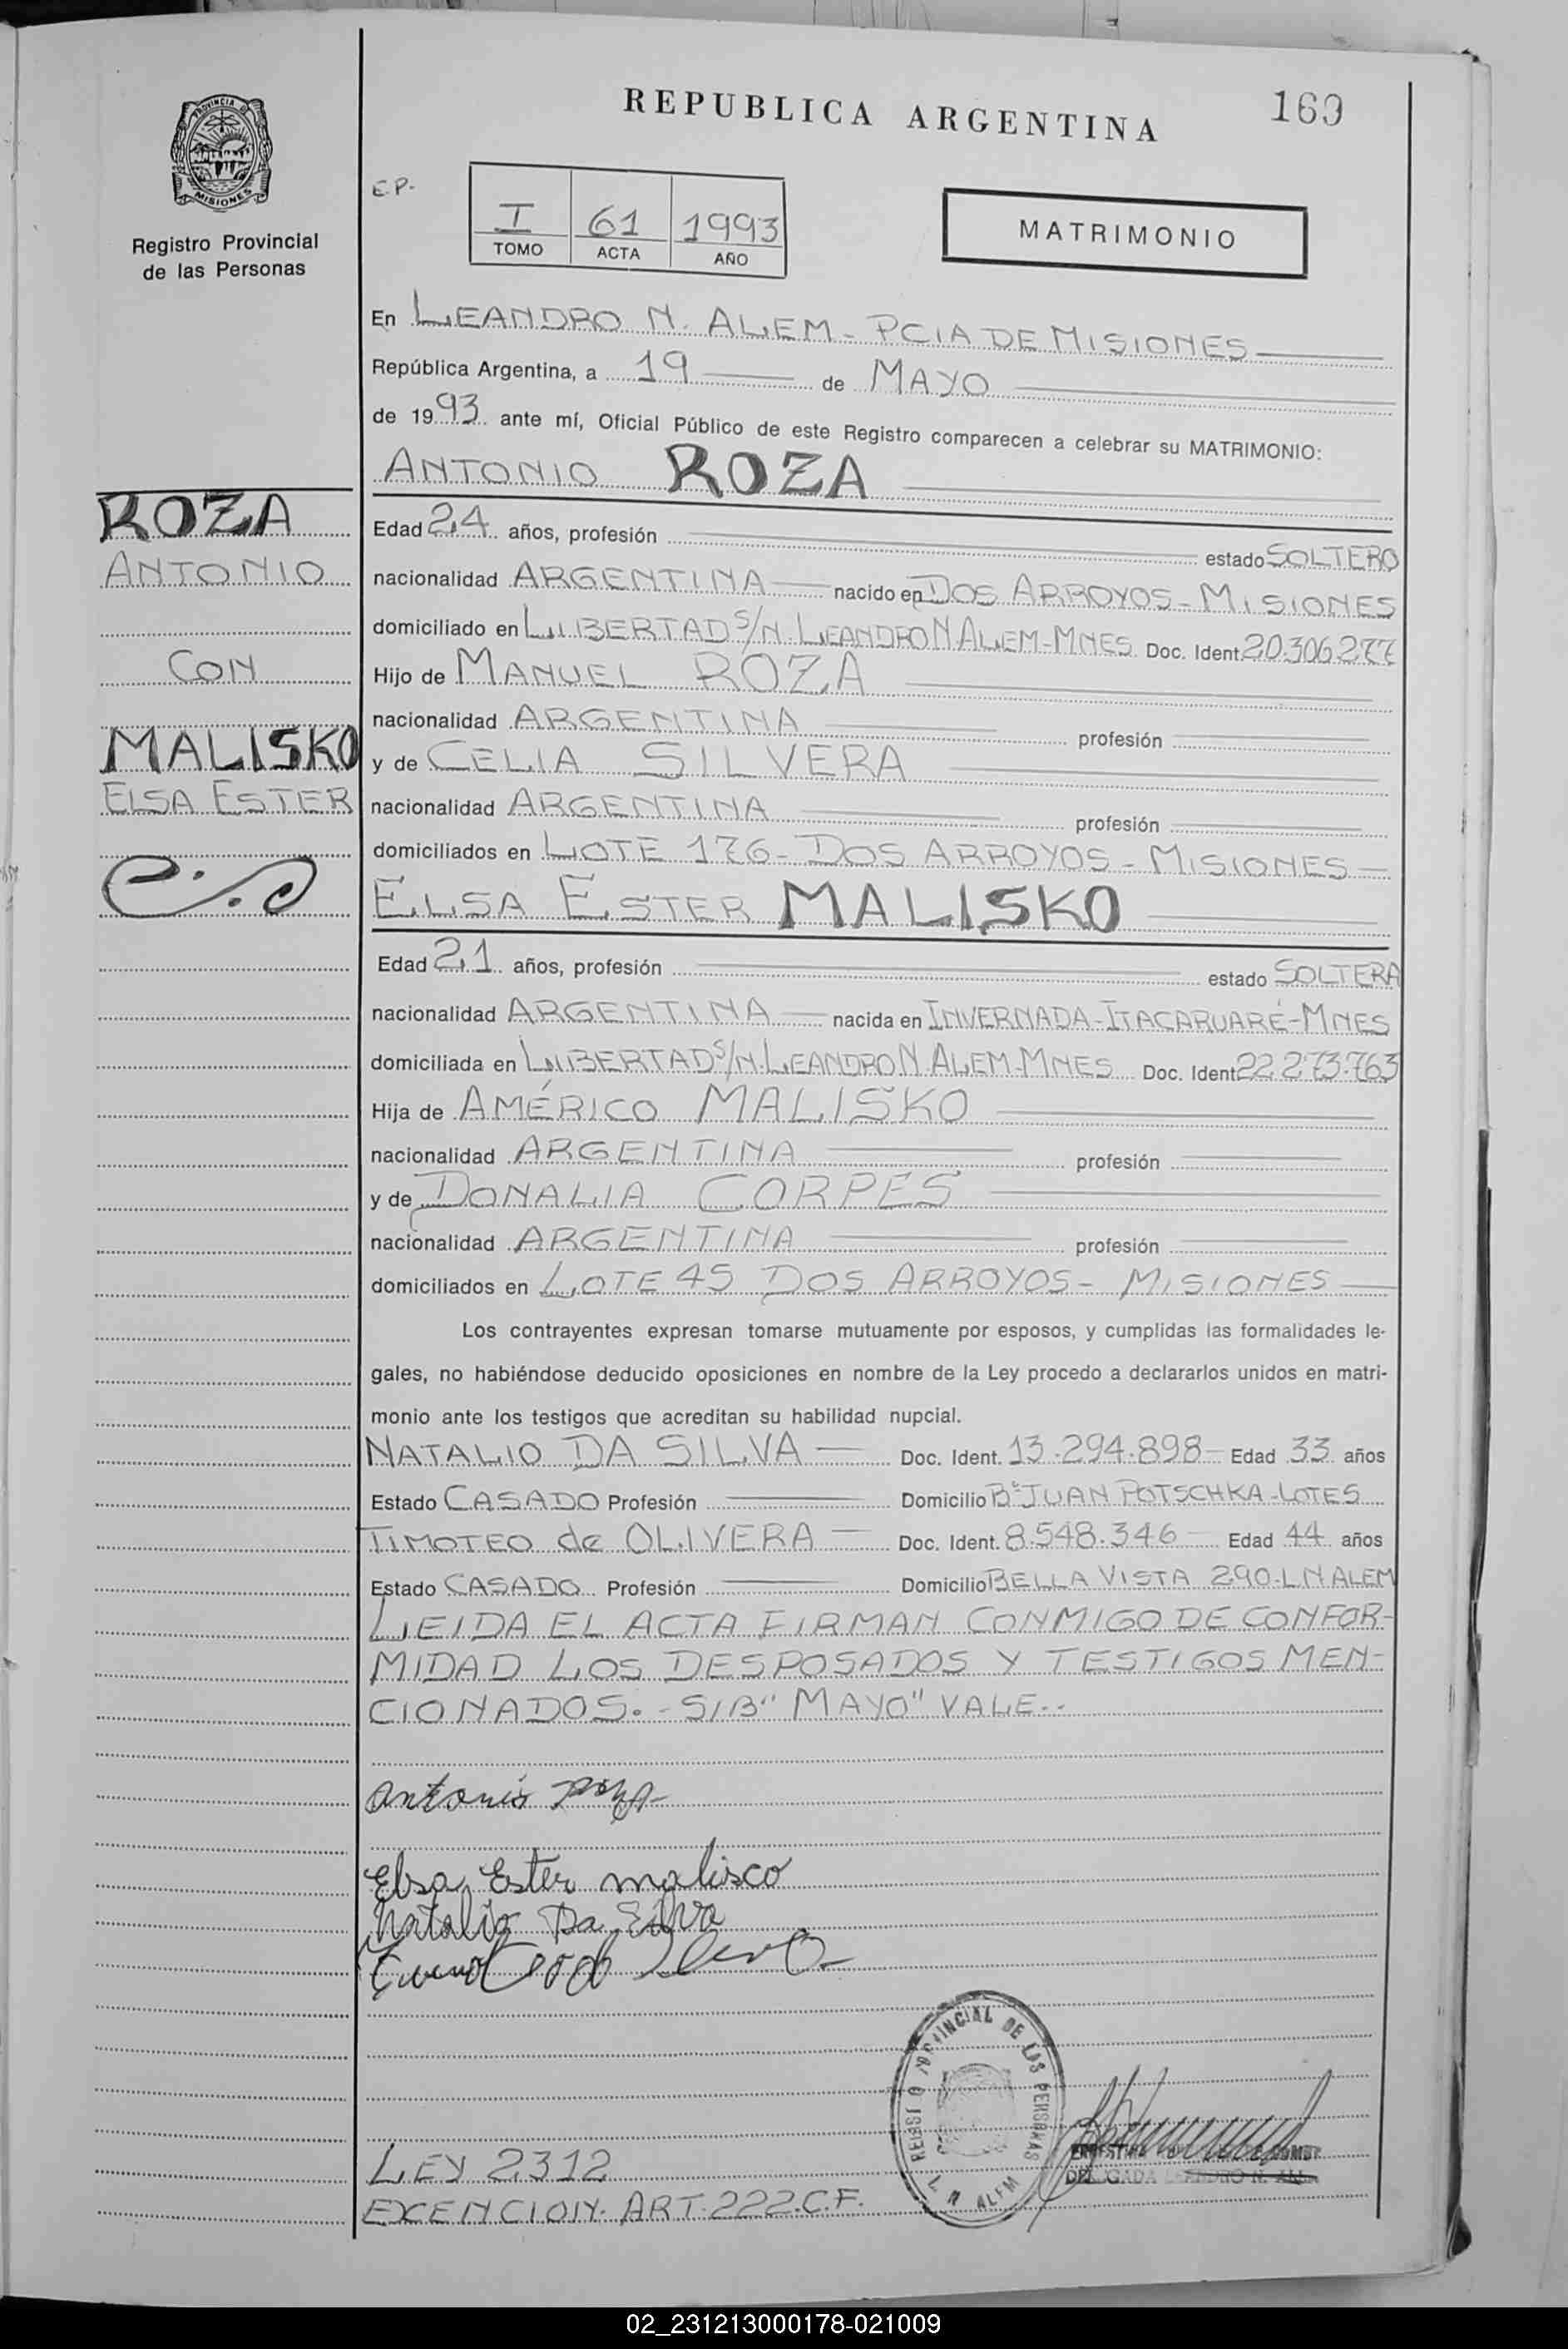 REPUBLICA ARGENTINA
169
PROVINCIA DE
MISIONES
Registro Provincial
de las Personas
E.P.
I 61 1993
TOMO ACTA AÑO
MATRIMONIO
En LEANDRO N. ALEM - PCIA DE MISIONES
República Argentina, a 19 de MAYO
de 1993 ante mí, Oficial Público de este Registro comparecen a celebrar su MATRIMONIO:
ANTONIO ROZA
ROZA
ANTONIO
CON
MALISKO
ELSA ESTER
Edad 24 años, profesión estado SOLTERO
nacionalidad ARGENTINA nacido en DOS ARROYOS - MISIONES
domiciliado en LIBERTAD S/N. LEANDRO N ALEM-MNES. Doc. Ident. 20.306.277
Hijo de MANUEL ROZA
nacionalidad ARGENTINA profesión
y de CELIA SILVERA
nacionalidad ARGENTINA profesión
domiciliados en LOTE 176 - DOS ARROYOS - MISIONES
ELSA ESTER MALISKO
Edad 21 años, profesión estado SOLTERA
nacionalidad ARGENTINA nacida en INVERNADA-ITACARUARÉ-MNES
domiciliada en LIBERTAD S/N. LEANDRO N. ALEM-MNES Doc. Ident. 22.273.763
Hija de AMÉRICO MALISKO
nacionalidad ARGENTINA profesión
y de DONALIA CORPES
nacionalidad ARGENTINA profesión
domiciliados en LOTE 45 DOS ARROYOS - MISIONES
Los contrayentes expresan tomarse mutuamente por esposos, y cumplidas las formalidades le-
gales, no habiéndose deducido oposiciones en nombre de la Ley procedo a declararlos unidos en matri-
monio ante los testigos que acreditan su habilidad nupcial.
NATALIO DA SILVA Doc. Ident. 13.294.898 Edad 33 años
Estado CASADO Profesión Domicilio Bº JUAN POTSCHKA-LOTES
TIMOTEO de OLIVERA Doc. Ident. 8.548.346 Edad 44 años
Estado CASADO Profesión Domicilio BELLA VISTA 290-L N ALEM
LEIDA EL ACTA FIRMAN CONMIGO DE CONFOR-
MIDAD LOS DESPOSADOS Y TESTIGOS MEN-
CIONADOS. - S/B "MAYO" VALE.-
Antonio
Elsa Ester malisco
Natalio Da Silva
PROVINCIAL DE LAS PERSONAS
L. N. ALEM
DELEGADA LEANDRO N. ALEM
LEY 2312
EXENCION. ART. 222.C.F.
02_231213000178-021009